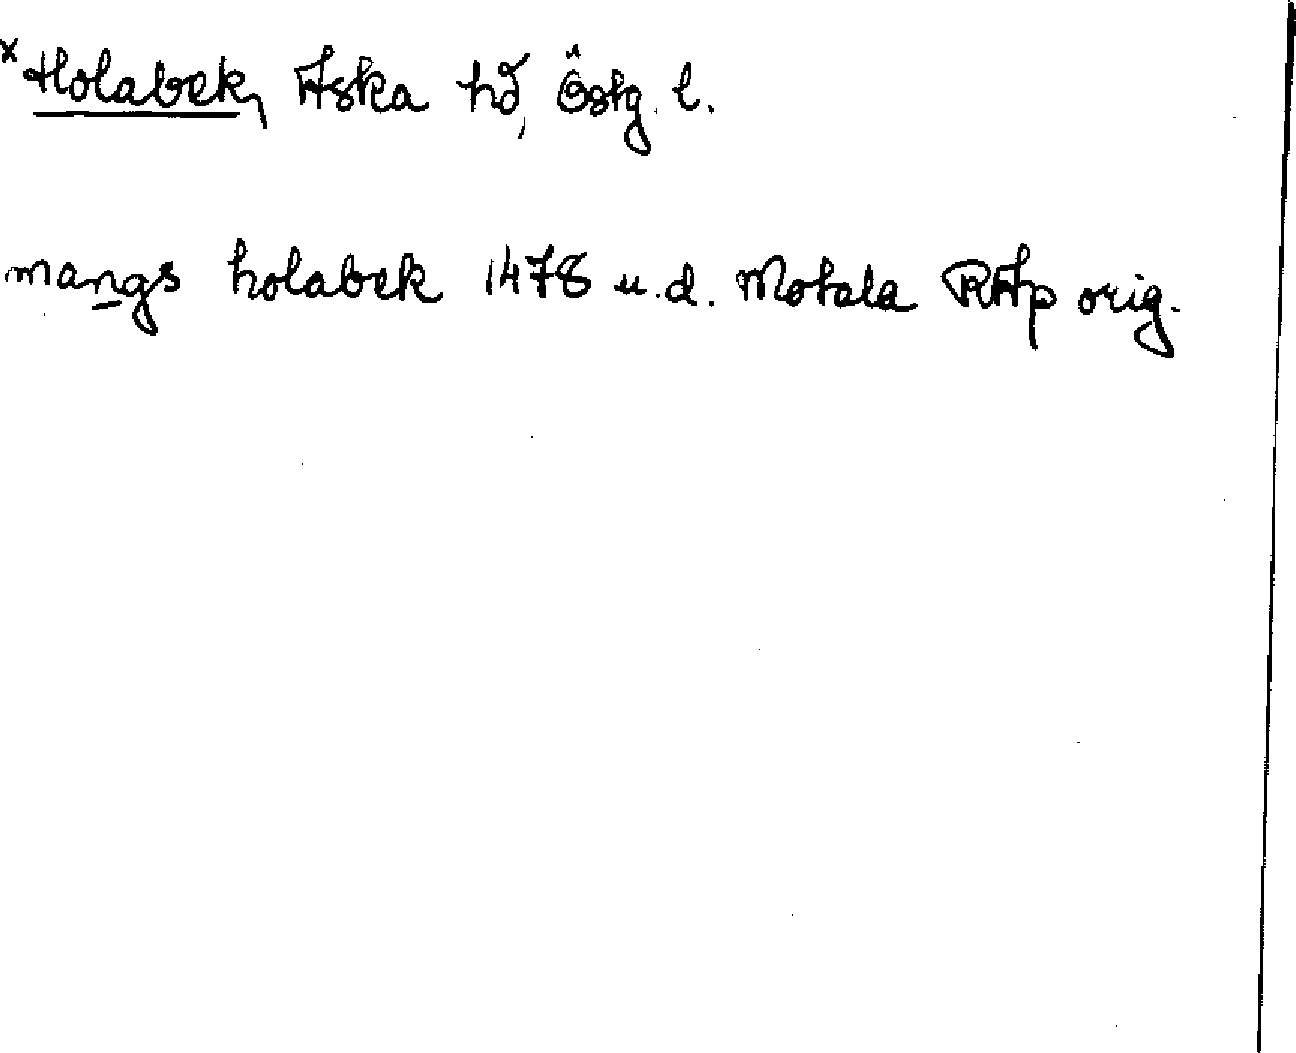 x Holabek, Aska hd, Östg. l.
mangs holabek 1478 u.d. Motala RAp orig.